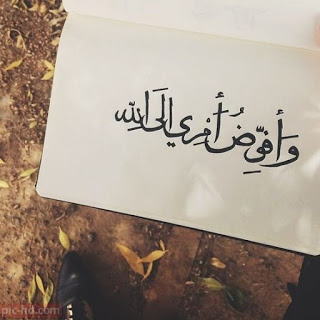 وَأفوِّضُ أمْري إلَى اللّٰه
pic-hd.com